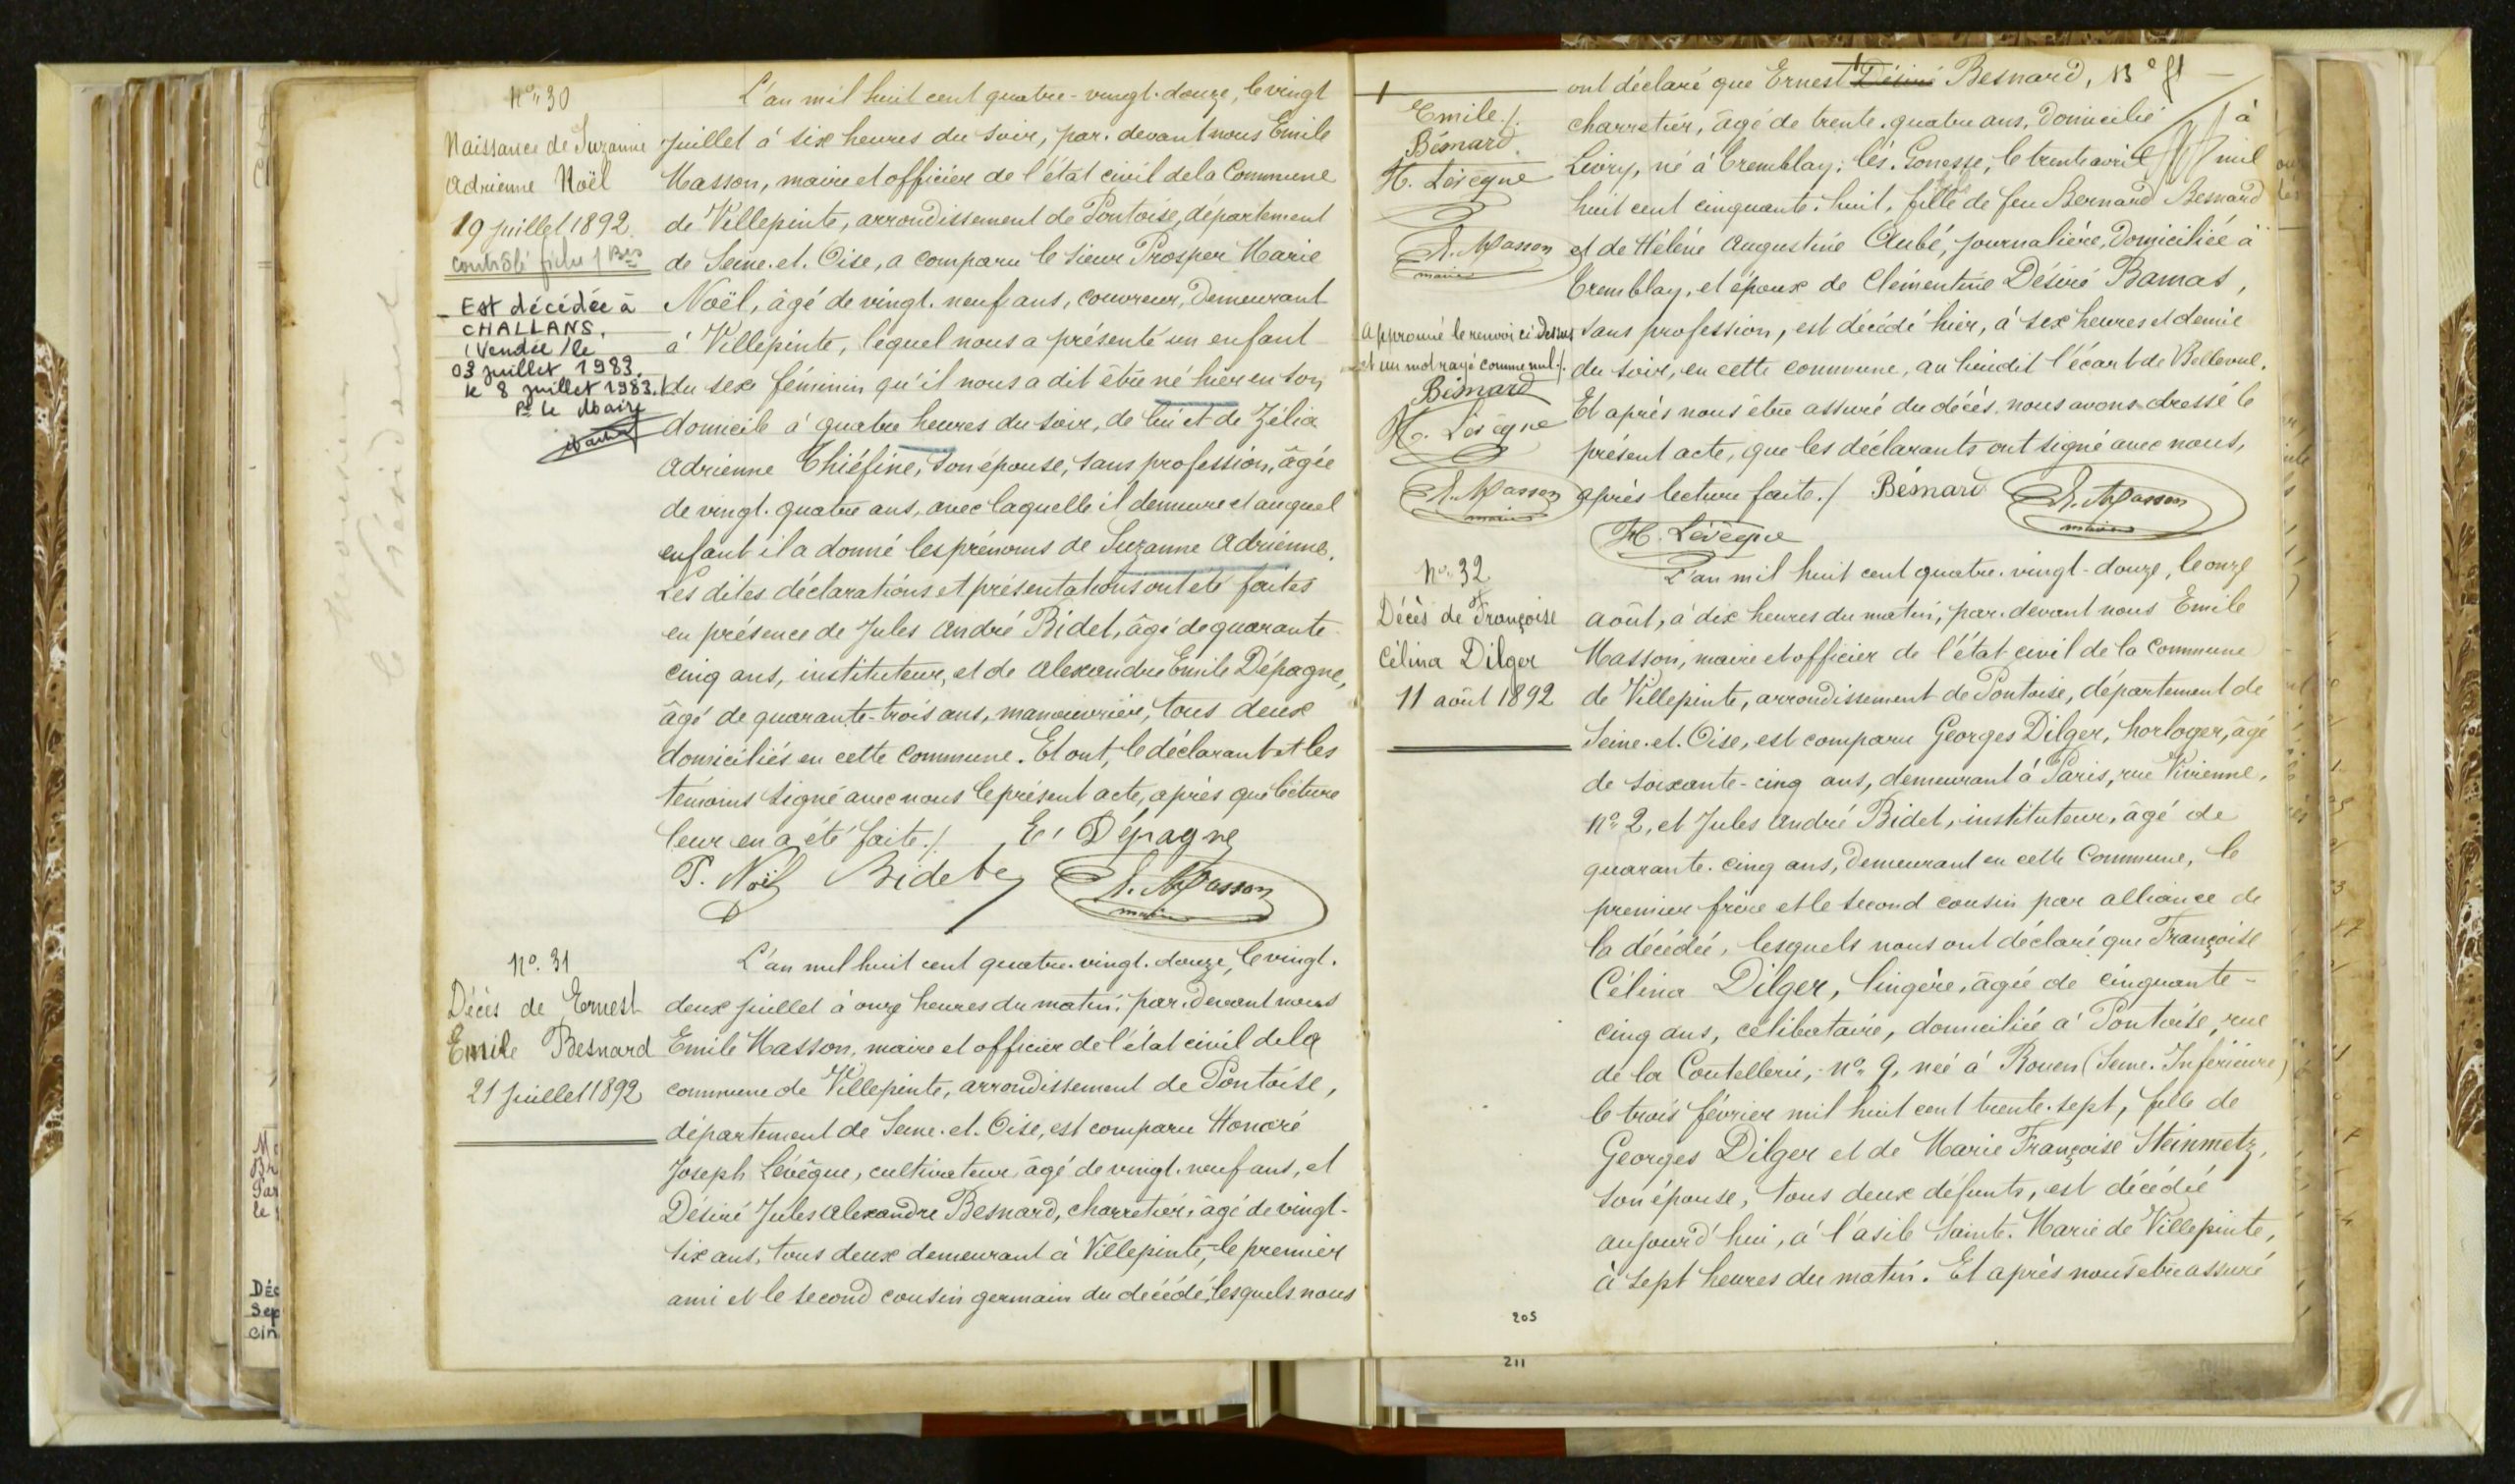 N° 30
Naissance de Suzanne
Adrienne Noël
19 juillet 1892.
contrôlé
Est décédée à
CHALLANS,
(Vendée) le
03 juillet 1983.
le 8 juillet 1983.
Pr le Maire
L'an mil huit cent quatre-vingt-douze, le vingt
juillet à six heures du soir, par-devant nous Emile
Masson, maire et officier de l'état civil de la Commune
de Villepinte, arrondissement de Pontoise, département
de Seine-et-Oise, a comparu le sieur Prosper Marie
Noël, âgé de vingt-neuf ans, couvreur, demeurant
à Villepinte, lequel nous a présenté un enfant
du sexe féminin qu'il nous a dit être né hier en son
domicile à quatre heures du soir, de lui et de Zélia
Adrienne Thiéfine, son épouse, sans profession, âgée
de vingt-quatre ans, avec laquelle il demeure et auquel
enfant il a donné les prénoms de Suzanne Adrienne.
Les dites déclarations et présentations ont été faites
en présence de Jules André Bidet, âgé de quarante-
cinq ans, instituteur, et de Alexandre Emile Dépagne,
âgé de quarante-trois ans, manouvrier, tous deux
domiciliés en cette commune. Et ont, le déclarant et les
témoins signé avec nous le présent acte, après que lecture
leur en a été faite./. E. Dépagne
P. Noël Bidet E. Masson
maire
N° 31
Décès de Ernest
Emile Besnard
21 juillet 1892
L'an mil huit cent quatre-vingt-douze, le vingt-
deux juillet à onze heures du matin, par-devant nous
Emile Masson, maire et officier de l'état civil de la
commune de Villepinte, arrondissement de Pontoise,
département de Seine-et-Oise, est comparu Honoré
Joseph Lévêque, cultivateur, âgé de vingt-neuf ans, et
Désiré Jules Alexandre Besnard, charretier, âgé de vingt-
six ans, tous deux demeurant à Villepinte, le premier
ami et le second cousin germain du décédé, lesquels nous
Emile /.
Bésnard.
H. Lévêque
E. Masson
maire
Approuvé le renvoi ci-dessus
et un mot rayé comme nul /.
Bésnard
H. Lévêque
E. Masson
maire
ont déclaré que Ernest Désiré Besnard,
charretier, âgé de trente-quatre ans, domicilié à
Livry, né à Tremblay-lès-Gonesse, le trente avril mil
huit cent cinquante-huit, fille de feu Bernard Besnard
et de Hélène Augustine Aubé, journalière, domiciliée à
Tremblay, et époux de Clémentine Désiré Bamas,
sans profession, est décédé hier, à six heures et demie
du soir, en cette commune, au lieudit l'écart de Bellevue.
Et après nous être assuré du décès, nous avons dressé le
présent acte, que les déclarants ont signé avec nous,
après lecture faite./. Bésnard E. Masson
maire
H. Lévêque
N° 32
Décès de Françoise
Célina Dilger
11 août 1892
L'an mil huit cent quatre-vingt-douze, le onze
août, à dix heures du matin, par-devant nous Emile
Masson, maire et officier de l'état civil de la Commune
de Villepinte, arrondissement de Pontoise, département de
Seine-et-Oise, est comparu Georges Dilger, horloger, âgé
de soixante-cinq ans, demeurant à Paris, rue Vivienne,
n° 2, et Jules André Bidet, instituteur, âgé de
quarante-cinq ans, demeurant en cette Commune, le
premier frère et le second cousin par alliance de
la décédée, lesquels nous ont déclaré que Françoise
Célina Dilger, lingère, âgée de cinquante-
cinq ans, célibataire, domiciliée à Pontoise, rue
de la Coutellerie, n° 9, née à Rouen (Seine-Inférieure)
le trois février mil huit cent trente-sept, fille de
Georges Dilger et de Marie Françoise Steinmetz,
son épouse, tous deux défunts, est décédée
aujourd'hui, à l'asile Sainte-Marie de Villepinte,
à sept heures du matin. Et après nous être assuré
205
211